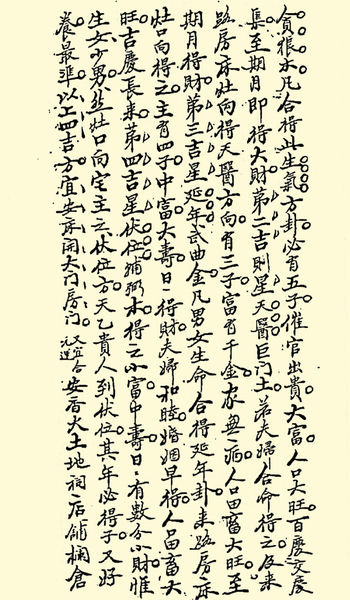 貪狼木凡合得此生氣方卦必有五子催官出貴大富人口大旺百慶交
集至期月即得大財第二吉則星天醫巨門土若夫婦合命得之及來
路房床灶向得天醫方向有三子富有千金家無病人口田畜大旺至
期月得財第三吉星延年武曲金凡男女生命合得延年卦來路房床
灶口向得之主有四子中富大壽日得財夫婦和睦婚姻早得人口田畜大
旺吉慶長來第四吉星伏位輔弼木得之小富中壽日有數分小財惟
生女少男然灶口向宅主之伏位方天乙貴人到伏位其年必得子又好
養最準以上四吉方宜安床開大门房门又宜合元運安香火土地祠店鋪欄倉